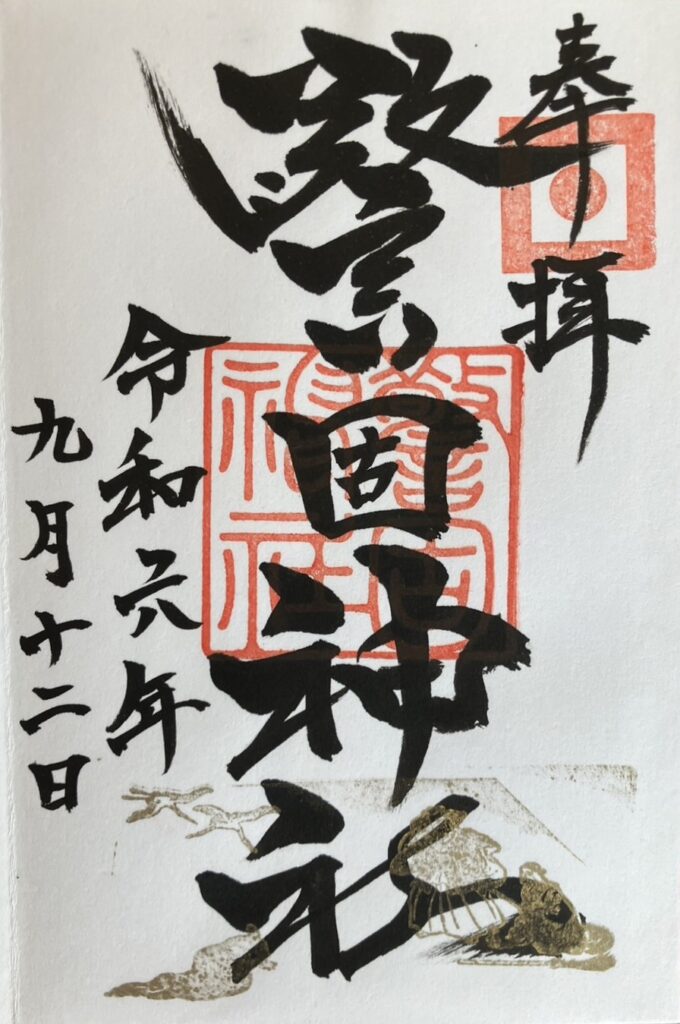 奉拝
警固神社
令和六年
九月十二日
警固
神社